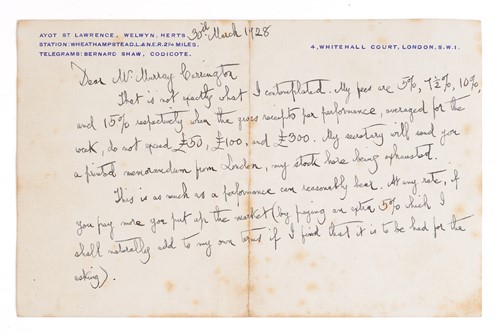 AYOT ST LAWRENCE, WELWYN, HERTS.
STATION: WHEATHAMPSTEAD, L.& N.E.R. 2¼ MILES.
TELEGRAMS: BERNARD SHAW, CODICOTE.
30th March 1928
4, WHITEHALL COURT, LONDON, S.W.1.
Dear Mr Murray Carrington
That is not exactly what I contemplated. My fees are 5%, 7½%, 10%,
and 15% respectively when the gross receipts per performance, averaged for the
week, do not exceed £50, £100, and £300. My secretary will send you
a printed memorandum from London, my stock here being exhausted.
This is as much as a performance can reasonably bear. At any rate, if
you pay more you put up the market (by paying an extra 5% which I
shall naturally add to my own terms if I find that it is to be had for the
asking).